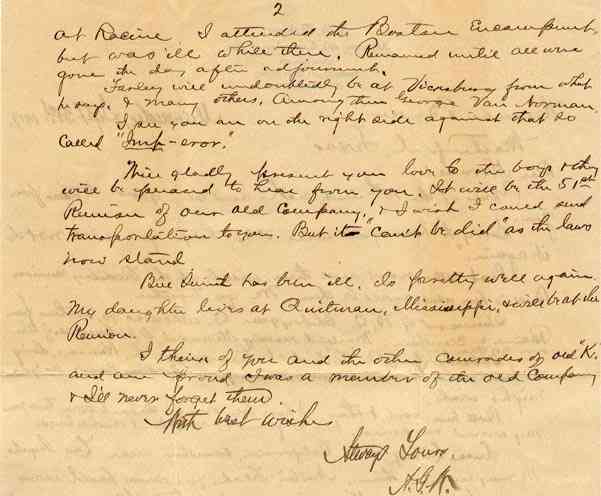 2
at Racine. I attended the Boston Encampment,
but was ill while there. Remained until all were
gone the day after adjournment.
Farley will undoubtedly be at Vicksburg from what
he says. & many others. Among them George Van Norman.
I see you are on the right side against that so
called "Imp-eror."
Will gladly present your love to the boys & they
will be pleased to hear from you. It will be the 51st
Reunion of our old Company, & I wish I could send
transportation to you. But it "can't be did" as the laws
now stand
has been ill. Is pretty well again.
My daughter lives at Quitman, Mississippi, & will be at the
Reunion.
I think of you and the other comrades of old "K."
and am proud I was a member of the old Company
& I'll never forget them.
With best wishes
Always Yours,
A.G.W.